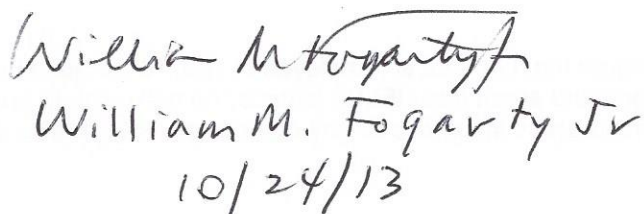 William M Fogarty Jr
William M. Fogarty Jr
10/24/13